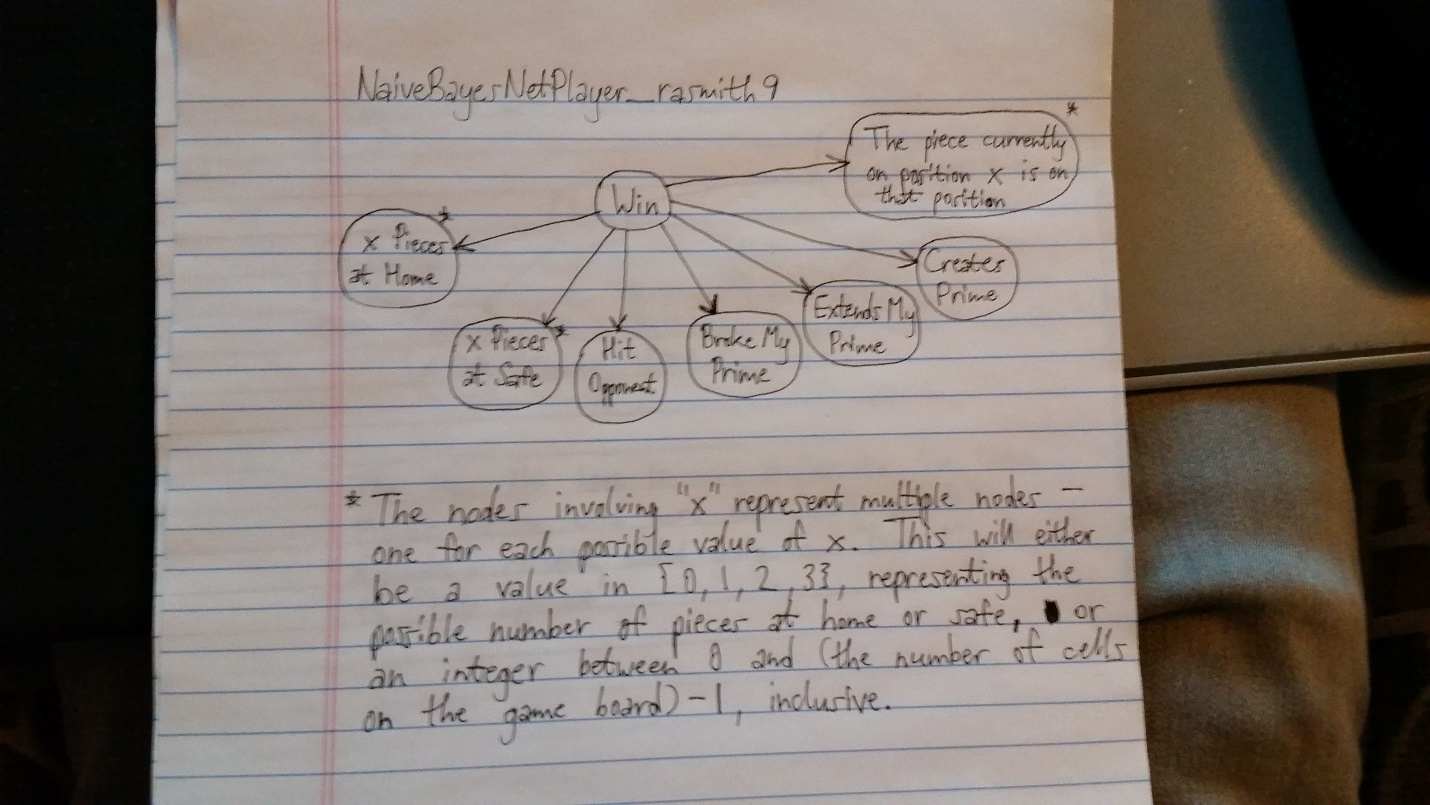 NaiveBayesNetPlayer_rasmith9
*
The piece currently
on position x is on
that position
Win
*
x Pieces
at Home
Creates
Prime
Extends My
Prime
*
x Pieces
at Safe
Hit
Opponent
Broke My
Prime
* The nodes involving "x" represent multiple nodes –
one for each possible value of x. This will either
be a value in {0, 1, 2, 3}, representing the
possible number of pieces at home or safe, or
an integer between 0 and (the number of cells
on the game board) - 1, inclusive.